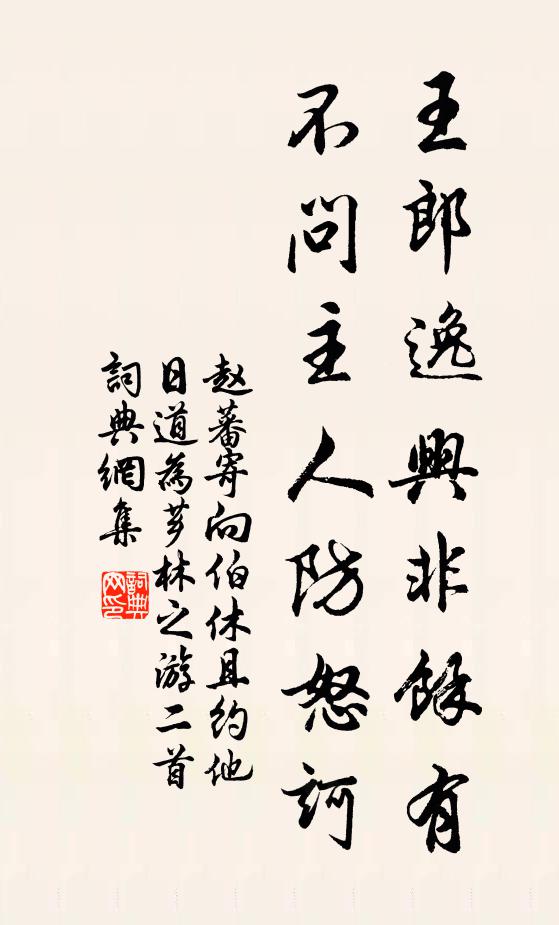 王郎逸興非餘有
不問主人防怒訶
赵蕃寄向伯休且约他
日道為芗林之游二首
詞典網集
詞典网印